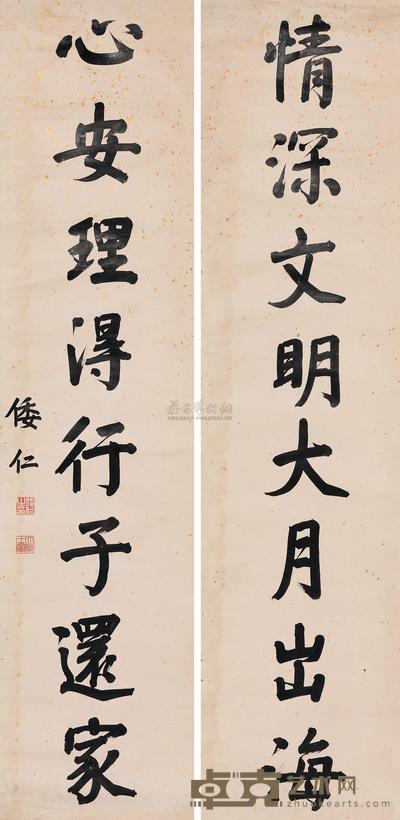 情深文明大月出海
心安理得行子還家
倭仁
卓克艺术网
zhuokearts.com